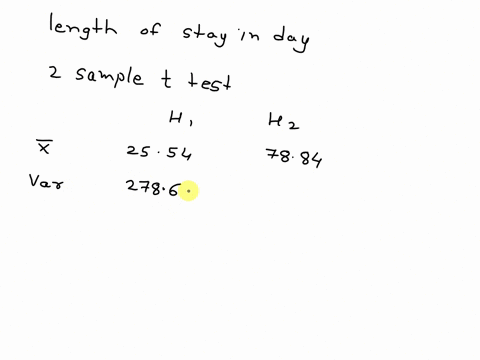 length of stay in day
2 sample t test
H1 H2
x̄ 25.54 78.84
Var 278.6